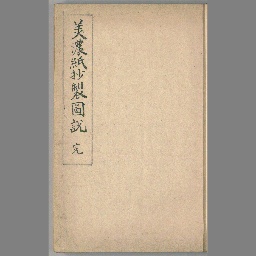 美濃紙抄製圖説 完